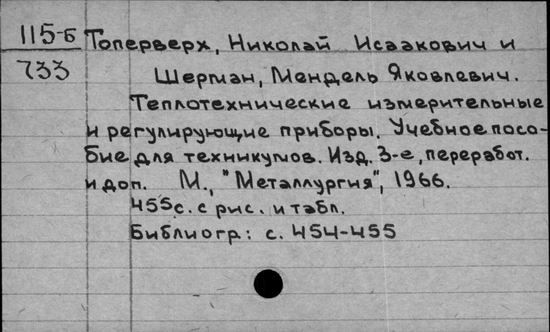 115-б
733
Топерверх, Николай Исаакович и
Шерман, Мендель Яковлевич.
Теплотехнические измерительные
и регулирующие приборы. Учебное посо-
бие для техникумов. Изд. 3-е, переработ.
и доп. М., "Металлургия", 1966.
455с. с рис. и табл.
Библиогр: с. 454-455